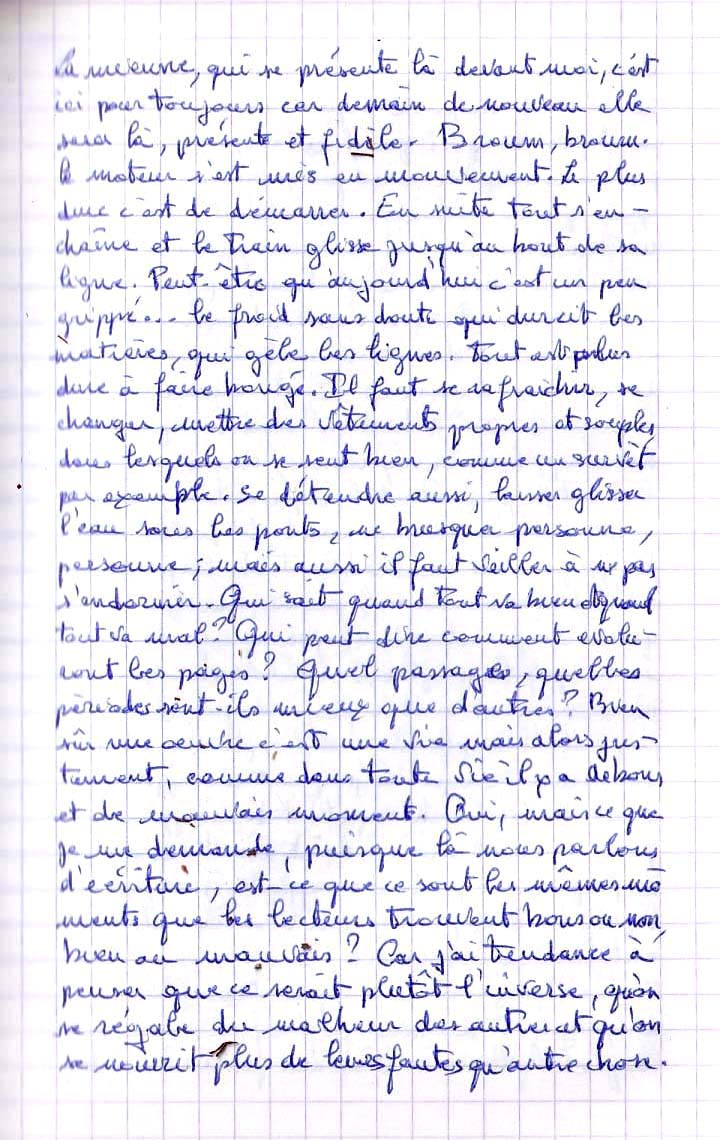 La mienne, qui se présente là devant moi, c'est
ici pour toujours car demain de nouveau elle
sera là, présente et fidèle. Broum, broum.
le moteur s'est mis en mouvement. Le plus
dur c'est de démarrer. En suite tout s'en-
chaîne et le train glisse jusqu'au bout de sa
ligne. Peut-être qu'aujourd'hui c'est un peu
grippé... le froid sans doute qui durcit les
matières, qui gèle les lignes. Tout est plus
dure à faire bougé. Il faut se rafraichir, se
changer, mettre des vêtements propres et souples
dans lesquels on se sent bien, comme un survèt
par exemple. Se détendre aussi, laisser glisser
l'eau sous les ponts, ne brusquer personne,
personne; mais aussi il faut veiller à ne pas
s'endormir. Qui sait quand tout va bien et quand
tout va mal? Qui peut dire comment evolu-
ront les pages? Quel passages, quelles
périodes sont-ils mieux que d'autres? Bien
sûr une oeuvre c'est une vie mais alors jus-
tement, comme dans toute vie il y a de bons
et de mauvais moment. Oui, mais ce que
je me demande, puisque là nous parlons
d'écriture, est-ce que ce sont les mêmes mo
ments que les lecteurs trouvent bons ou non,
bien ou mauvais? Car j'ai tendance à
penser que ce serait plutôt l'inverse, qu'on
se régale du malheur des autres et qu'on
se nourrit plus de leurs fautes qu'autre chose.